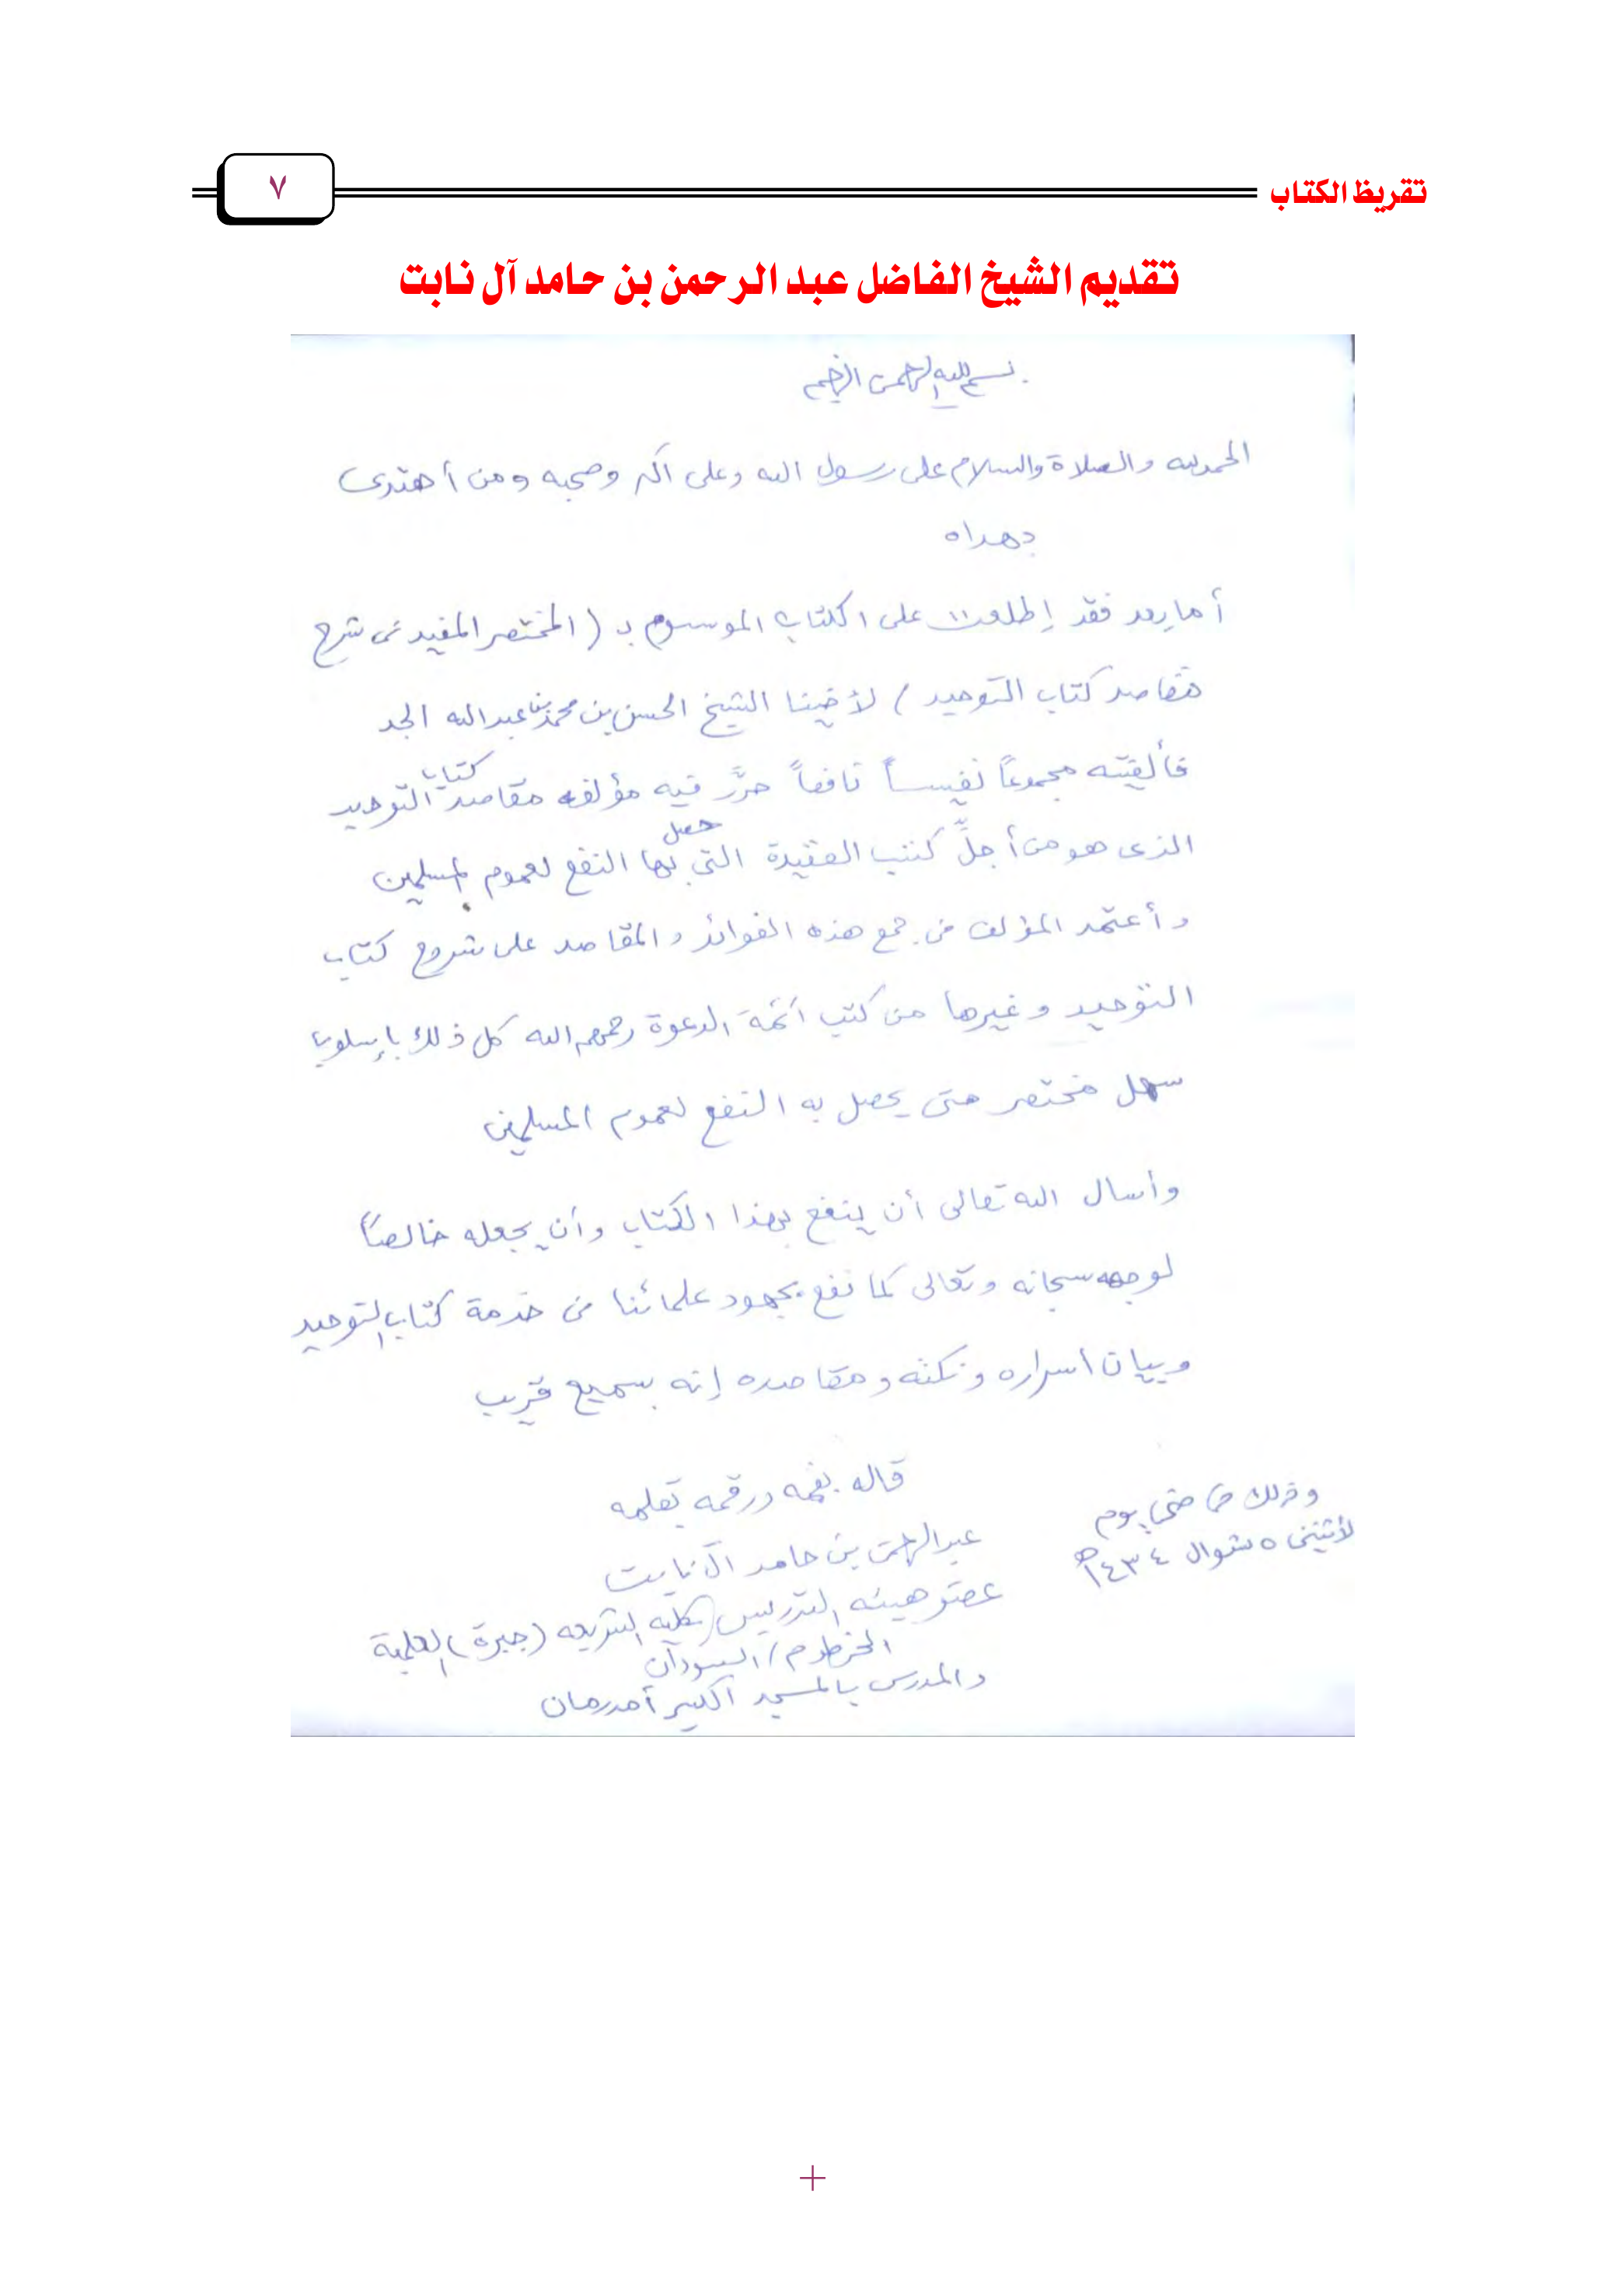 تقريظ الكتاب
٧
تقديم الشيخ الفاضل عبد الرحمن بن حامد آل نابت
بسم الله الرحمن الرحيم
الحمد لله والصلاة والسلام على رسول الله وعلى آله وصحبه ومن أهتدى
بهداه
أما بعد فقد إطلعت على الكتاب الموسوم بـ (المختصر المفيد في شرح
مقاصد كتاب التوحيد) لأخينا الشيخ الحسن بن محمد بن عبد الله الجد
فألفيته مجموعاً نفيساً نافعاً حرَّر فيه مؤلفه مقاصد كتاب التوحيد
الذي هو من أجلِّ كتب العقيدة التي حصل بها النفع لعموم المسلمين
وأعتمد المؤلف في جمع هذه الفوائد والمقاصد على شروح كتاب
التوحيد وغيرها من كتب أئمة الدعوة رحمهم الله كل ذلك بإسلوب
سهل مختصر حتى يحصل به النفع لعموم المسلمين
وأسال الله تعالى أن ينفع بهذا الكتاب وأن يجعله خالصاً
لوجهه سبحانه وتعالى كما نفع بجهود علمائنا في خدمة كتاب التوحيد
وبيان أسراره ونكته ومقاصده إنه سميع قريب
قاله بفمه ورقمه بقلمه
عبد الرحمن بن حامد آل نابت
عضو هيئه التدريس بكليه الشريعه (جبرة) العلمية
الخرطوم / السودان
والمدرس بالمسجد الكبير أمدرمان
وذلك في ضحى يوم
لأثنين ٥ شوال ١٤٣٤ هـ